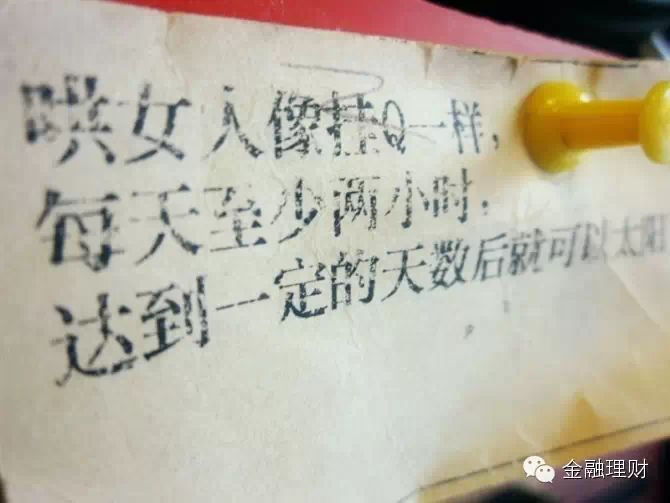 哄女人像挂Q一样，
每天至少两小时，
达到一定的天数后就可以太阳
金融理财